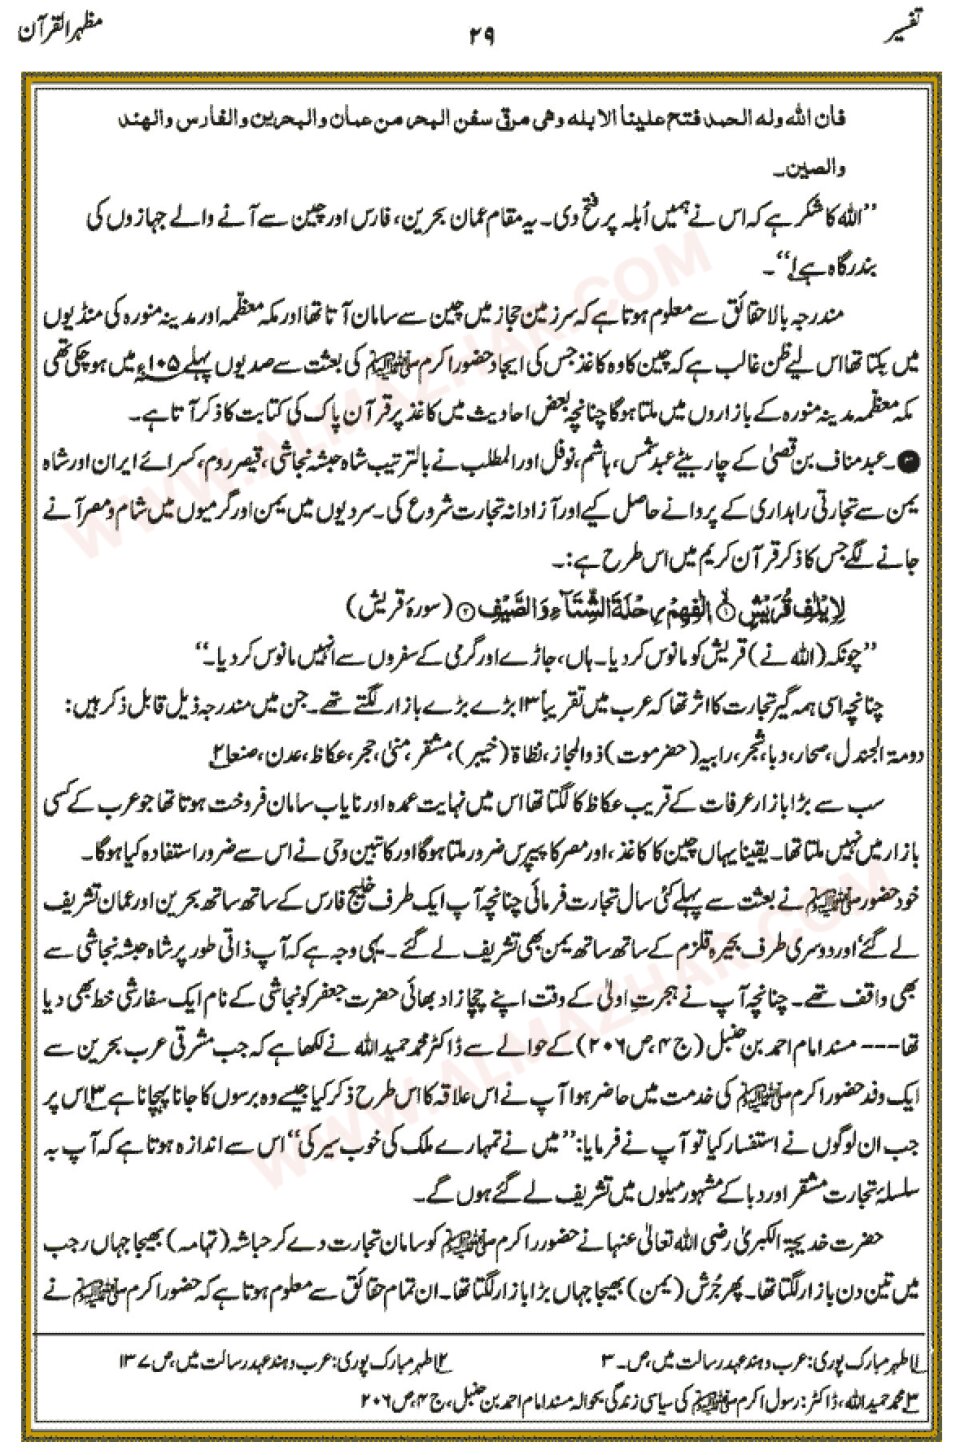 تفسیر
۲۹
مظہر القرآن
فان الله وله الحمد فتح علينا الابله وهى مرقى سفن البحر من عمان والبحرين والفارس والهند
والصين۔
’’اللہ کا شکر ہے کہ اس نے ہمیں اُبلہ پر فتح دی۔ یہ مقام عمان بحرین، فارس اور چین سے آنے والے جہازوں کی
بندرگاہ ہے۱‘‘۔
مندرجہ بالا حقائق سے معلوم ہوتا ہے کہ سرزمین حجاز میں چین سے سامان آتا تھا اور مکہ معظّمہ اور مدینہ منورہ کی منڈیوں
میں بکتا تھا اس لیے ظن غالب ہے کہ چین کا وہ کاغذ جس کی ایجاد حضور اکرم ﷺ کی بعثت سے صدیوں پہلے ۱۰۵ء میں ہو چکی تھی
مکہ معظّمہ مدینہ منورہ کے بازاروں میں ملتا ہوگا چنانچہ بعض احادیث میں کاغذ پر قرآن پاک کی کتابت کا ذکر آتا ہے۔
۔عبد مناف بن قصیٰ کے چار بیٹے عبد شمس، ہاشم، نوفل اور المطلب نے بالترتیب شاہ حبشہ نجاشی، قیصر روم، کسرائے ایران اور شاہ
یمن سے تجارتی راہداری کے پروانے حاصل کیے اور آزادانہ تجارت شروع کی۔ سردیوں میں یمن اور گرمیوں میں شام و مصر آنے
جانے لگے جس کا ذکر قرآن کریم میں اس طرح ہے:۔
لِاِیْلٰفِ قُرَیْشٍ ۱ اٖلٰفِهِمْ رِحْلَةَ الشِّتَآءِ وَالصَّیْفِ ۲ (سورۂ قریش)
’’چونکہ (اللہ نے) قریش کو مانوس کردیا۔ ہاں، جاڑے اور گرمی کے سفروں سے انہیں مانوس کردیا۔‘‘
چنانچہ اسی ہمہ گیر تجارت کا اثر تھا کہ عرب میں تقریباً ۱۳ بڑے بڑے بازار لگتے تھے۔ جن میں مندرجہ ذیل قابل ذکر ہیں:
دومۃ الجندل، صحار، دبا، شجر، رابیہ (حضر موت) ذوالمجاز، نظاۃ (خیبر)، مشقر، منیٰ، حجر، عکاظ، عدن، صنعا۲
سب سے بڑا بازار عرفات کے قریب عکاظ کا لگتا تھا اس میں نہایت عمدہ اور نایاب سامان فروخت ہوتا تھا جو عرب کے کسی
بازار میں نہیں ملتا تھا۔ یقیناً یہاں چین کا کاغذ، اور مصر کا پیپرس ضرور ملتا ہوگا اور کاتبین وحی نے اس سے ضرور استفادہ کیا ہوگا۔
خود حضور ﷺ نے بعثت سے پہلے کئی سال تجارت فرمائی چنانچہ آپ ایک طرف خلیج فارس کے ساتھ ساتھ بحرین اور عمان تشریف
لے گئے، اور دوسری طرف بحیرہ قلزم کے ساتھ ساتھ یمن بھی تشریف لے گئے۔ یہی وجہ ہے کہ آپ ذاتی طور پر شاہ حبشہ نجاشی سے
بھی واقف تھے۔ چنانچہ آپ نے ہجرتِ اولیٰ کے وقت اپنے چچازاد بھائی حضرت جعفر کو نجاشی کے نام ایک سفارشی خط بھی دیا
تھا--- مسند امام احمد بن حنبل (ج ۴، ص ۲۰۶) کے حوالے سے ڈاکٹر محمد حمید اللہ نے لکھا ہے کہ جب مشرقی عرب بحرین سے
ایک وفد حضور اکرم ﷺ کی خدمت میں حاضر ہوا آپ نے اس علاقہ کا اس طرح ذکر کیا جیسے وہ برسوں کا جانا پہچانا ہے۳ اس پر
جب ان لوگوں نے استفسار کیا تو آپ نے فرمایا: ’’میں نے تمہارے ملک کی خوب سیر کی‘‘ اس سے اندازہ ہوتا ہے کہ آپ بہ
سلسلۂ تجارت مشقر اور دبا کے مشہور میلوں میں تشریف لے گئے ہوں گے۔
حضرت خدیجۃ الکبریٰ رضی اللہ تعالیٰ عنہا نے حضور اکرم ﷺ کو سامان تجارت دے کر حباشہ (تہامہ) بھیجا جہاں رجب
میں تین دن بازار لگتا تھا۔ پھر جُرش (یمن) بھیجا جہاں بڑا بازار لگتا تھا۔ ان تمام حقائق سے معلوم ہوتا ہے کہ حضور اکرم ﷺ نے
۱ اطہر مبارک پوری: عرب و ہند عہد رسالت میں، ص۔۳
۲ اطہر مبارک پوری: عرب و ہند عہد رسالت میں، ص ۱۳۷
۳ محمد حمید اللہ، ڈاکٹر: رسول اکرم ﷺ کی سیاسی زندگی بحوالہ مسند امام احمد بن حنبل، ج ۴، ص ۲۰۶
WWW.ALMAZHAR.COM
WWW.ALMAZHAR.COM